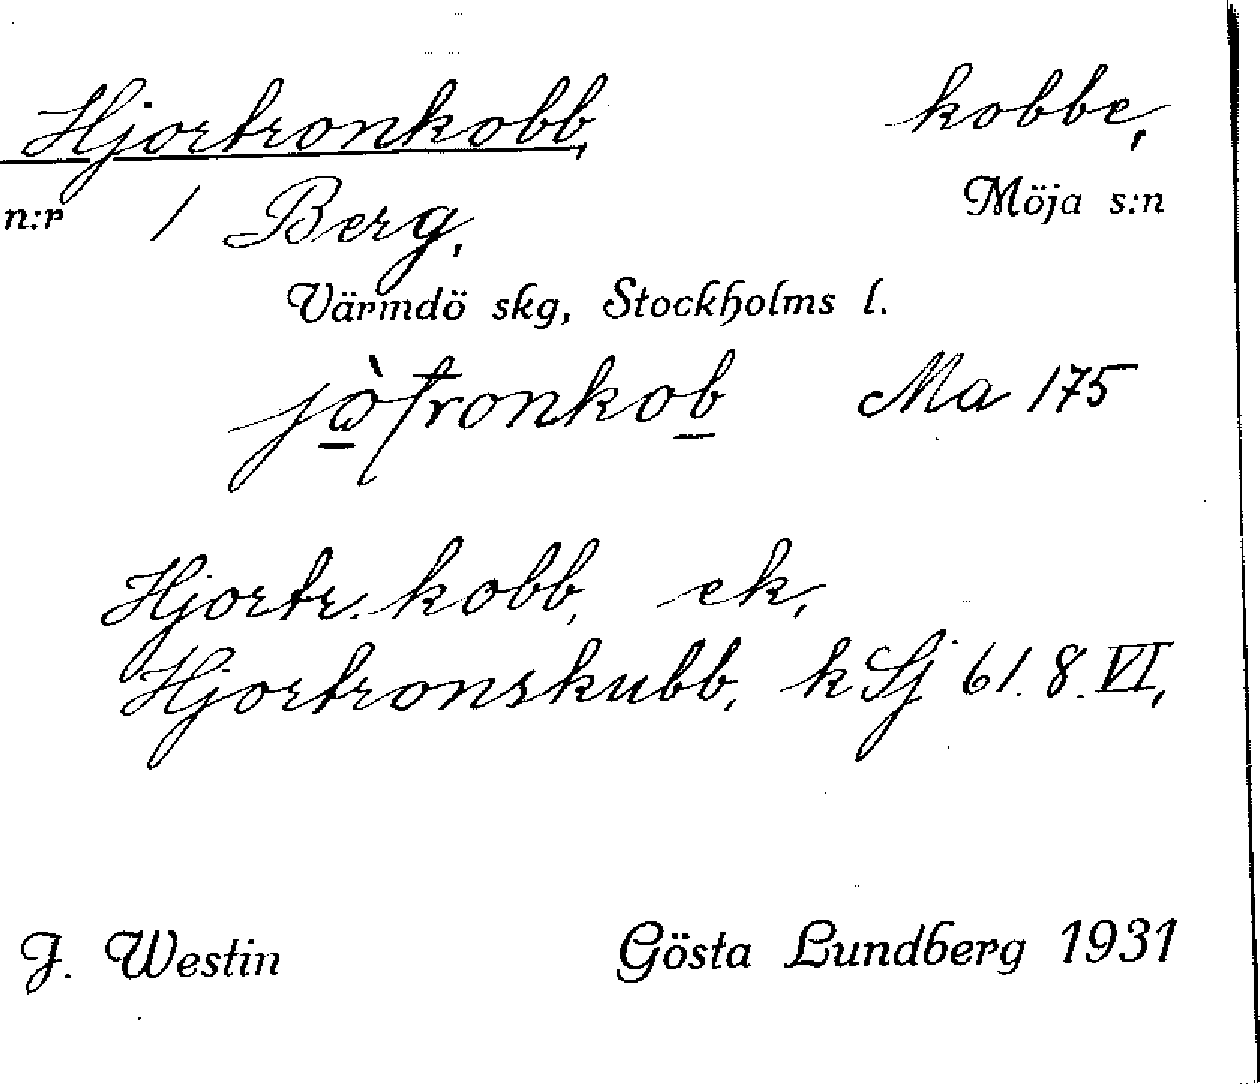 Hjortronkobb, kobbe,
n:r 1 Berg, Möja s:n
Värmdö skg, Stockholms l.
Ma 175
Hjortr. kobb, ek,
Hjortronskubb, k Sj 61. 8. VI,
J. Westin Gösta Lundberg 1931